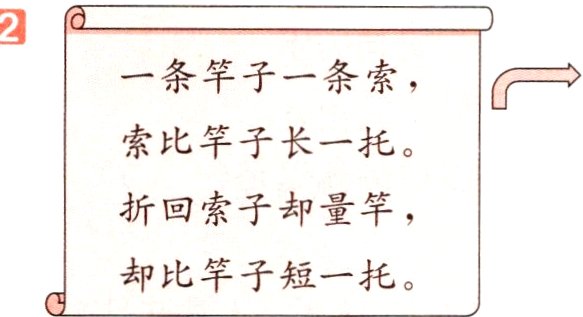 2
一条竿子一条索，
索比竿子长一托。
折回索子却量竿，
却比竿子短一托。